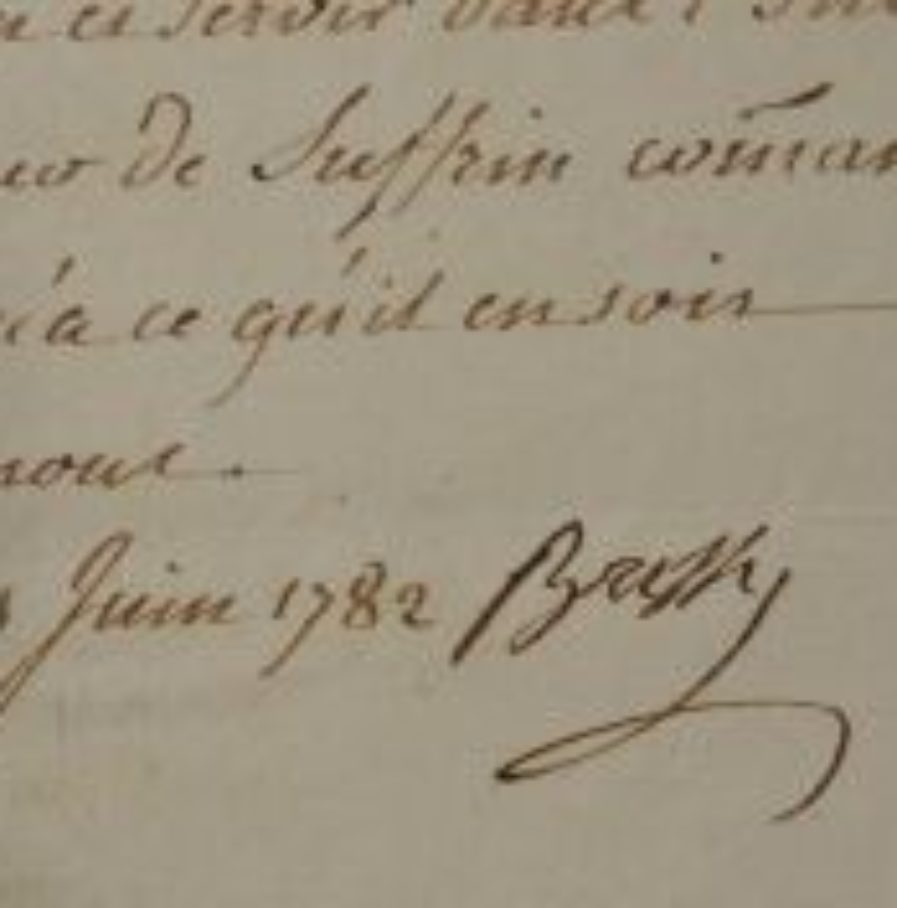 servir dans l'
de Suffrin com̃an
a ce qu'il en soit
nous.
Juin 1782 Bussy